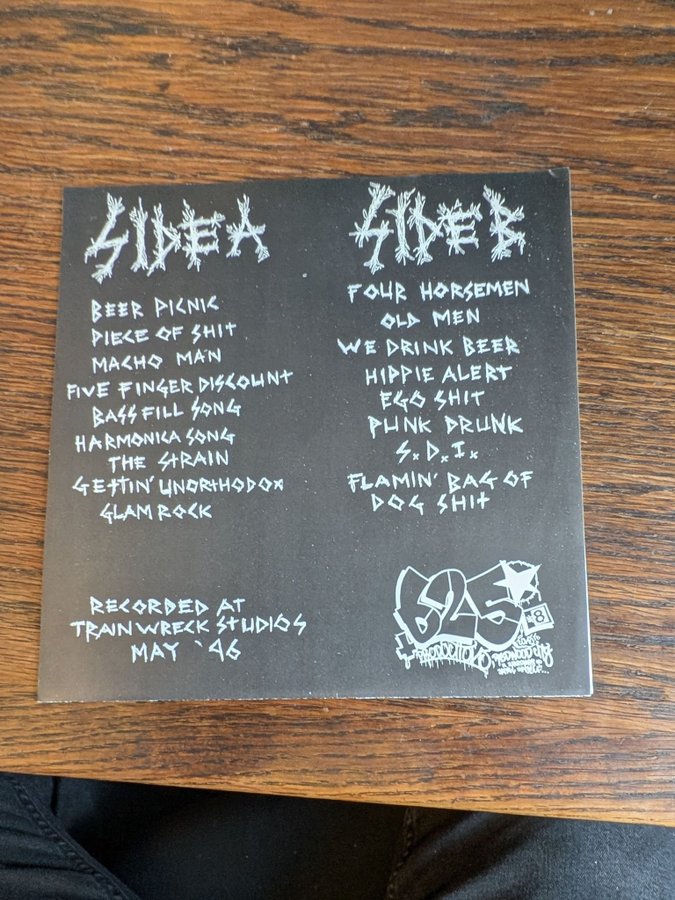 SIDE A
BEER PICNIC
PIECE OF SHIT
MACHO MAN
FIVE FINGER DISCOUNT
BASS FILL SONG
HARMONICA SONG
THE STRAIN
GETTIN' UNORTHODOX
GLAM ROCK
SIDE B
FOUR HORSEMEN
OLD MEN
WE DRINK BEER
HIPPIE ALERT
EGO SHIT
PUNK DRUNK
S.D.I.
FLAMIN' BAG OF
DOG SHIT
RECORDED AT
TRAINWRECK STUDIOS
MAY '96
625
#8
PRODUCTIONS